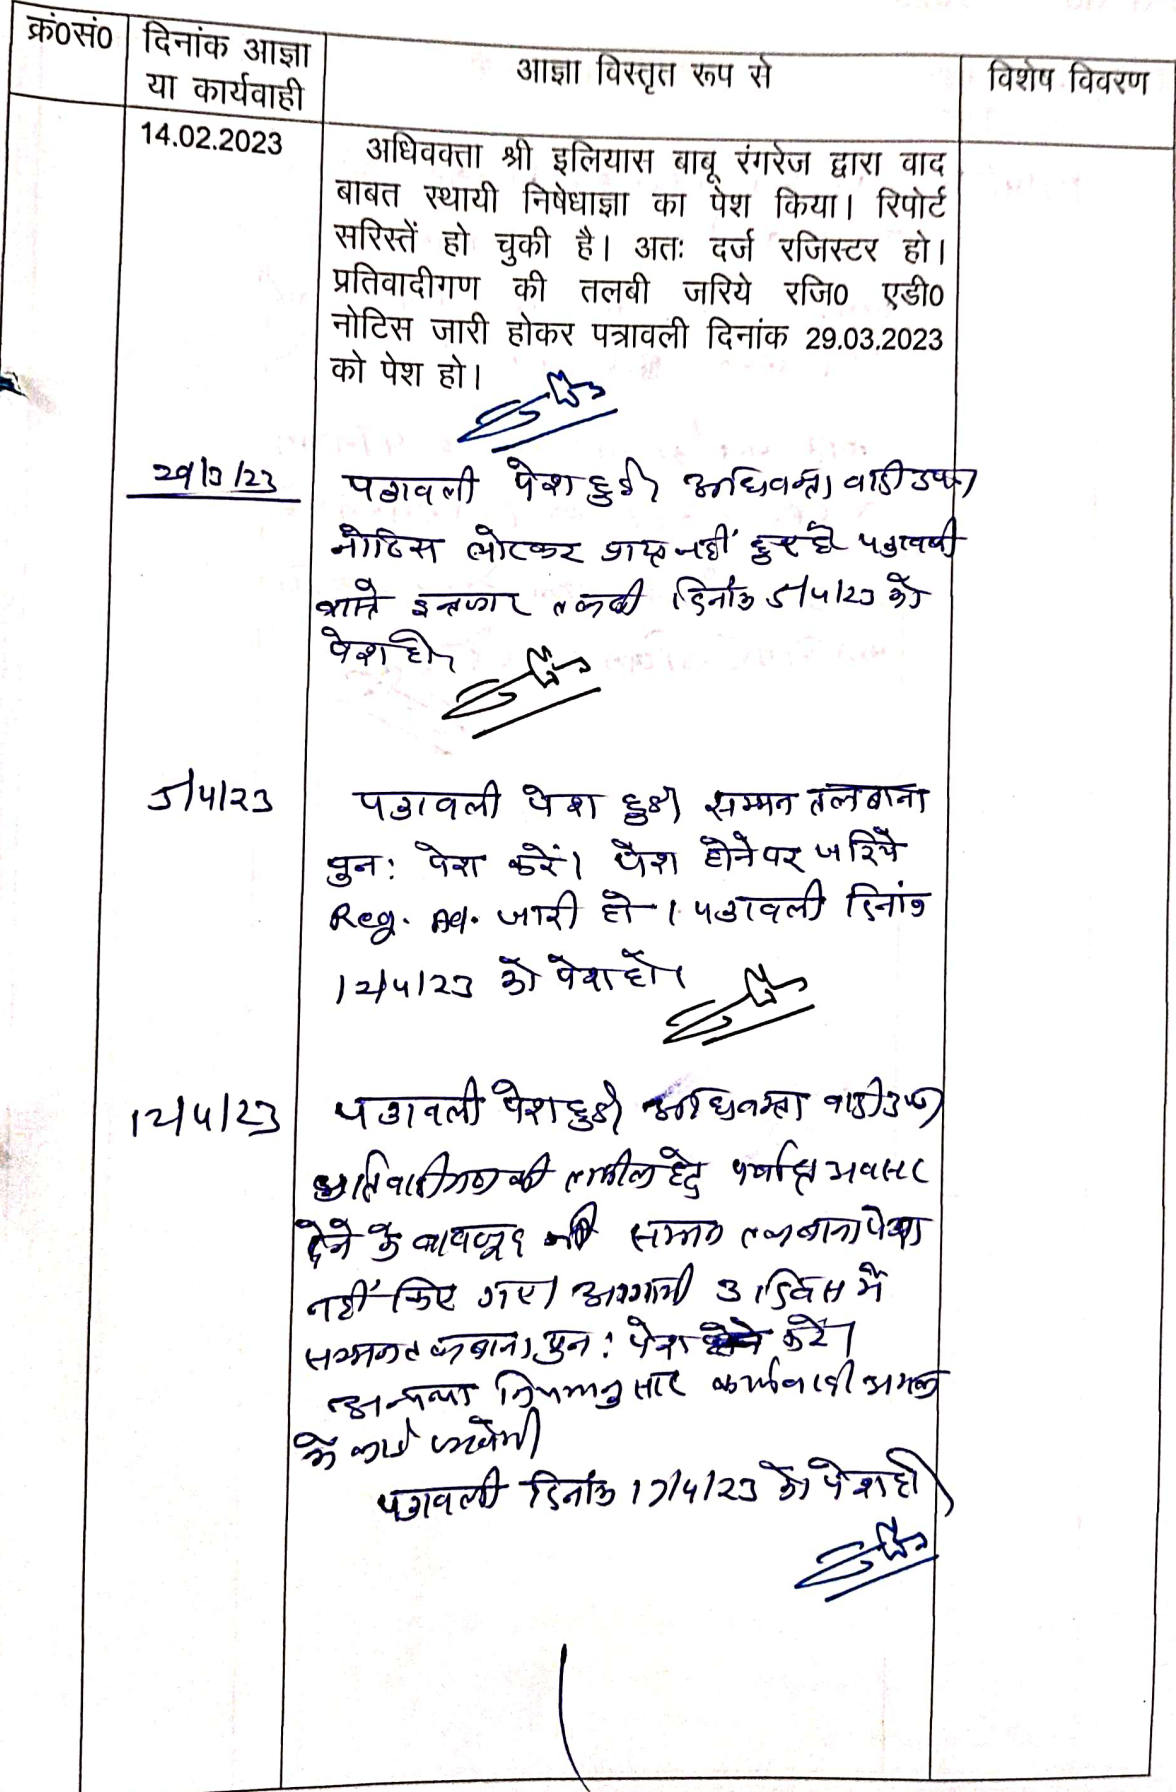 क्रं०सं० दिनांक आज्ञा आज्ञा विस्तृत रूप से विशेष विवरण
या कार्यवाही
14.02.2023 अधिवक्ता श्री इलियास बाबू रंगरेज द्वारा वाद
बाबत स्थायी निषेधाज्ञा का पेश किया। रिपोर्ट
सरिस्तें हो चुकी है। अतः दर्ज रजिस्टर हो।
प्रतिवादीगण की तलबी जरिये रजि० एडी०
नोटिस जारी होकर पत्रावली दिनांक 29.03.2023
को पेश हो।
29/3/23 पत्रावली पेश हुई। अधिवक्ता वादी उप०
नोटिस लोटकर प्राप्त नहीं हुए है पत्रावली
वास्ते इन्तजार तलबी दिनांक 5/4/23 को
पेश हो।
5/4/23 पत्रावली पेश हुई। सम्मन तलबाना
पुन: पेश करें। पेश होने पर जरिये
Reg. AD. जारी हो। पत्रावली दिनांक
12/4/23 को पेश हो।
12/4/23 पत्रावली पेश हुई। अधिवक्ता वादी उप०
प्रतिवादीगण की तामील हेतु पर्याप्त अवसर
देने के बावजूद भी सम्मन तलबाना पेश
नहीं किए गए। आगामी 3 दिवस में
सम्मन तलबाना पुन: पेश करें।
अन्यथा नियमानुसार कार्यवाही अमल
में लाई जावेगी
पत्रावली दिनांक 17/4/23 को पेश हो।